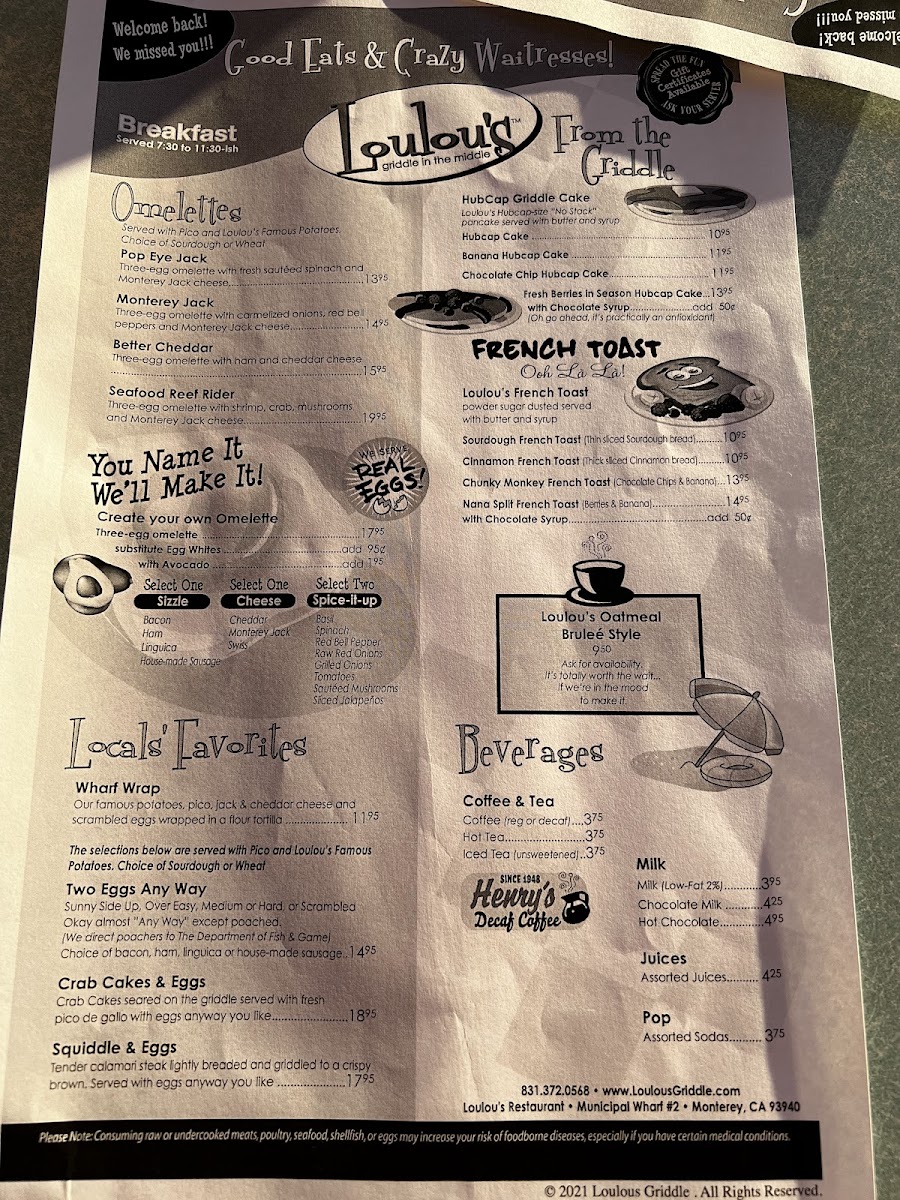 Welcome back!
We missed you!!!
Good Eats & Crazy Waitresses!
SPREAD THE FUN
Gift
Certificates
Available
ASK YOUR SERVER
elcome back!
missed you!!!
Breakfast
Served 7:30 to 11:30-ish
Loulou's™
griddle in the middle
Omelettes
Served with Pico and Loulou's Famous Potatoes.
Choice of Sourdough or Wheat
Pop Eye Jack
Three-egg omelette with fresh sautéed spinach and
Monterey Jack cheese...13.95
Monterey Jack
Three-egg omelette with carmelized onions, red bell
peppers and Monterey Jack cheese...14.95
Better Cheddar
Three-egg omelette with ham and cheddar cheese
...15.95
Seafood Reef Rider
Three-egg omelette with shrimp, crab, mushrooms
and Monterey Jack cheese...19.95
You Name It
We'll Make It!
WE SERVE
REAL
EGGS!
Create your own Omelette
Three-egg omelette...17.95
substitute Egg Whites...add 95¢
with Avocado...add 1.95
Select One
Sizzle
Bacon
Ham
Linguica
House-made Sausage
Select One
Cheese
Cheddar
Monterey Jack
Swiss
Select Two
Spice-it-up
Basil
Spinach
Red Bell Pepper
Raw Red Onions
Grilled Onions
Tomatoes
Sautéed Mushrooms
Sliced Jalapeños
Locals' Favorites
Wharf Wrap
Our famous potatoes, pico, jack & cheddar cheese and
scrambled eggs wrapped in a flour tortilla...11.95
The selections below are served with Pico and Loulou's Famous
Potatoes. Choice of Sourdough or Wheat
Two Eggs Any Way
Sunny Side Up, Over Easy, Medium or Hard, or Scrambled
Okay almost "Any Way" except poached.
(We direct poachers to The Department of Fish & Game)
Choice of bacon, ham, linguica or house-made sausage..14.95
Crab Cakes & Eggs
Crab Cakes seared on the griddle served with fresh
pico de gallo with eggs anyway you like...18.95
Squiddle & Eggs
Tender calamari steak lightly breaded and griddled to a crispy
brown. Served with eggs anyway you like...17.95
From the
Griddle
HubCap Griddle Cake
Loulou's Hubcap-size "No Stack"
pancake served with butter and syrup
Hubcap Cake...10.95
Banana Hubcap Cake...11.95
Chocolate Chip Hubcap Cake...11.95
Fresh Berries in Season Hubcap Cake...13.95
with Chocolate Syrup...add 50¢
(Oh go ahead, it's practically an antioxidant)
FRENCH TOAST
Ooh Là Là!
Loulou's French Toast
powder sugar dusted served
with butter and syrup
Sourdough French Toast (Thin sliced Sourdough bread)...10.95
Cinnamon French Toast (Thick sliced Cinnamon bread)...10.95
Chunky Monkey French Toast (Chocolate Chips & Banana)...13.95
Nana Split French Toast (Berries & Banana)...14.95
with Chocolate Syrup...add 50¢
Loulou's Oatmeal
Bruleé Style
9.50
Ask for availability.
It's totally worth the wait...
If we're in the mood
to make it.
Beverages
Coffee & Tea
Coffee (reg or decaf)....3.75
Hot Tea...3.75
Iced Tea (unsweetened)..3.75
SINCE 1948
Henry's
Decaf Coffee
Milk
Milk (Low-Fat 2%)...3.95
Chocolate Milk...4.25
Hot Chocolate...4.95
Juices
Assorted Juices...4.25
Pop
Assorted Sodas...3.75
831.372.0568 • www.LoulousGriddle.com
Loulou's Restaurant • Municipal Wharf #2 • Monterey, CA 93940
Please Note: Consuming raw or undercooked meats, poultry, seafood, shellfish, or eggs may increase your risk of foodborne diseases, especially if you have certain medical conditions.
© 2021 Loulous Griddle . All Rights Reserved.